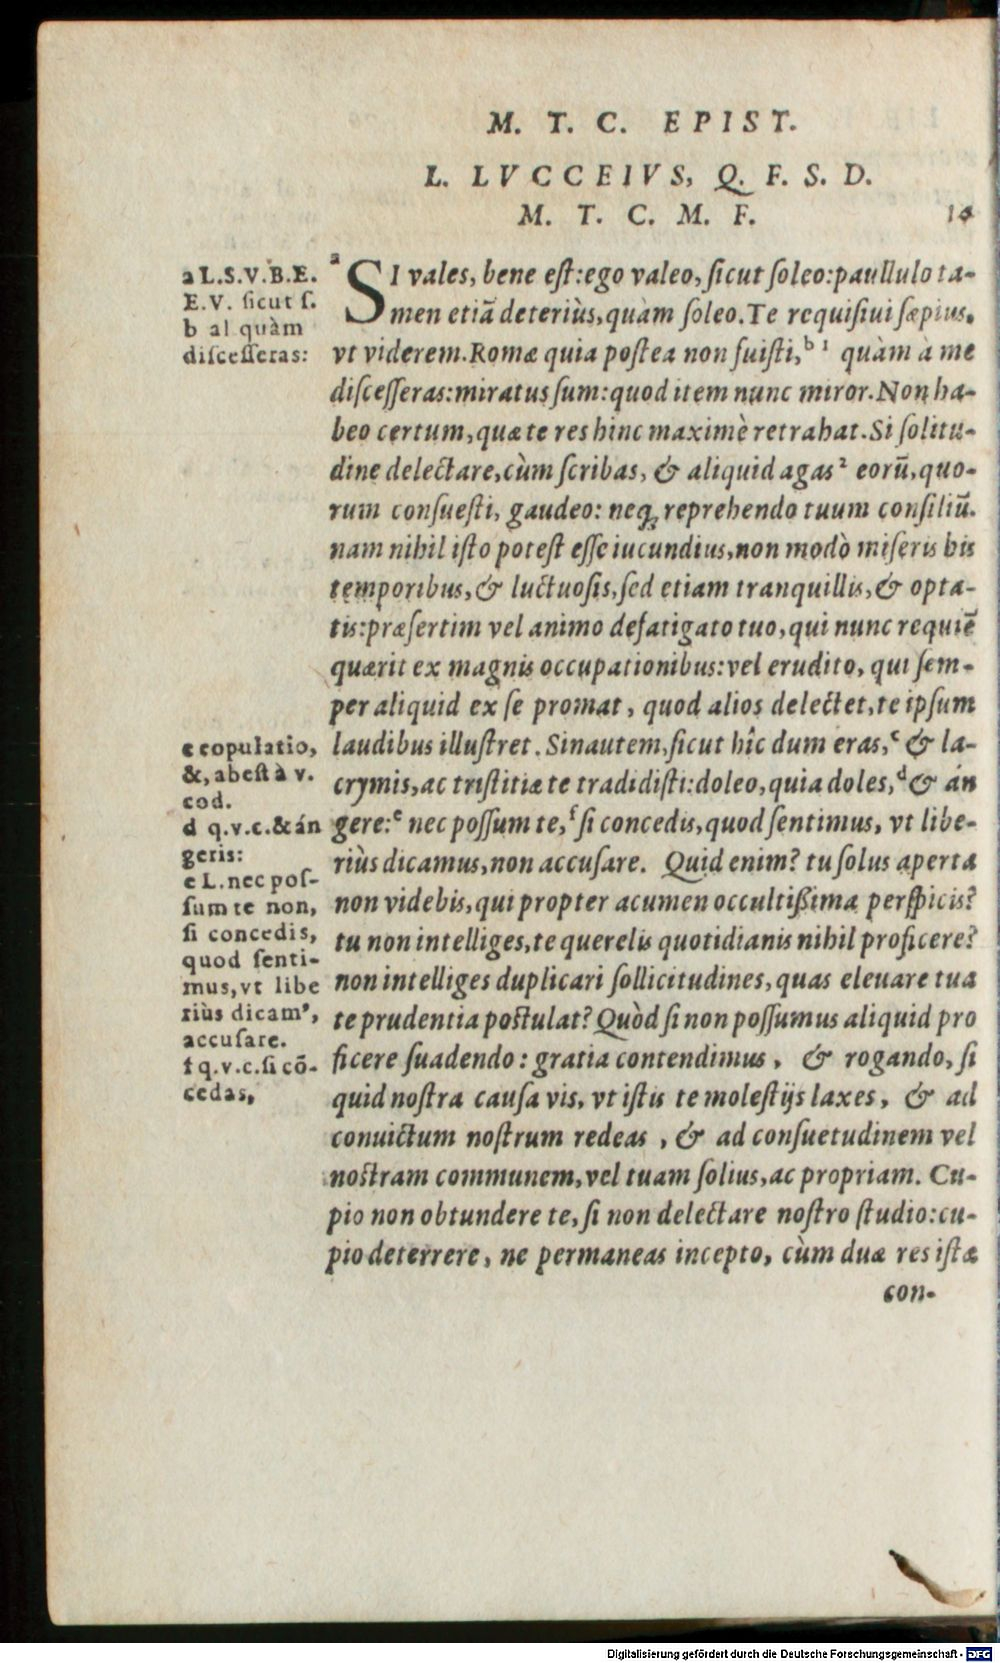 M. T. C. EPIST.
L. LVCCEIVS, Q. F. S. D.
M. T. C. M. F.
a L.S.V.B.E.
E.V. sicut s.
b al quàm
discesseras:
c copulatio,
&, abest à v.
cod.
d q.v.c.& án
geris:
e L. nec pos-
sum te non,
si concedis,
quod senti-
mus, vt libe
riùs dicamꝰ,
accusare.
f q.v.c. si cō-
cedas,
ᵃSI vales, bene est: ego valeo, sicut soleo: paullulo ta-
men etiā deteriùs, quàm soleo. Te requisiui sæpius,
vt viderem. Romæ quia postea non fuisti,ᵇ ¹ quàm à me
discesseras: miratus sum: quod item nunc miror. Non ha-
beo certum, quæ te res hinc maximè retrahat. Si solitu-
dine delectare, cùm scribas, & aliquid agas² eorū, quo-
rum consuesti, gaudeo: neq; reprehendo tuum consiliū.
nam nihil isto potest esse iucundius, non modò miseris his
temporibus, & luctuosis, sed etiam tranquillis, & opta-
tis: præsertim vel animo defatigato tuo, qui nunc requiē
quærit ex magnis occupationibus: vel erudito, qui sem-
per aliquid ex se promat, quod alios delectet, te ipsum
laudibus illustret. Sin autem, sicut hîc dum eras,ᶜ & la-
crymis, ac tristitiæ te tradidisti: doleo, quia doles,ᵈ & án
gere:ᵉ nec possum te,ᶠ si concedis, quod sentimus, vt libe-
riùs dicamus, non accusare. Quid enim? tu solus aperta
non videbis, qui propter acumen occultißima perspicis?
tu non intelliges, te querelis quotidianis nihil proficere?
non intelliges duplicari sollicitudines, quas eleuare tua
te prudentia postulat? Quòd si non possumus aliquid pro
ficere suadendo: gratia contendimus, & rogando, si
quid nostra causa vis, vt istis te molestijs laxes, & ad
conuictum nostrum redeas, & ad consuetudinem vel
nostram communem, vel tuam solius, ac propriam. Cu-
pio non obtundere te, si non delectare nostro studio: cu-
pio deterrere, ne permaneas incepto, cùm duæ res istæ
con-
Digitalisierung gefördert durch die Deutsche Forschungsgemeinschaft - DFG